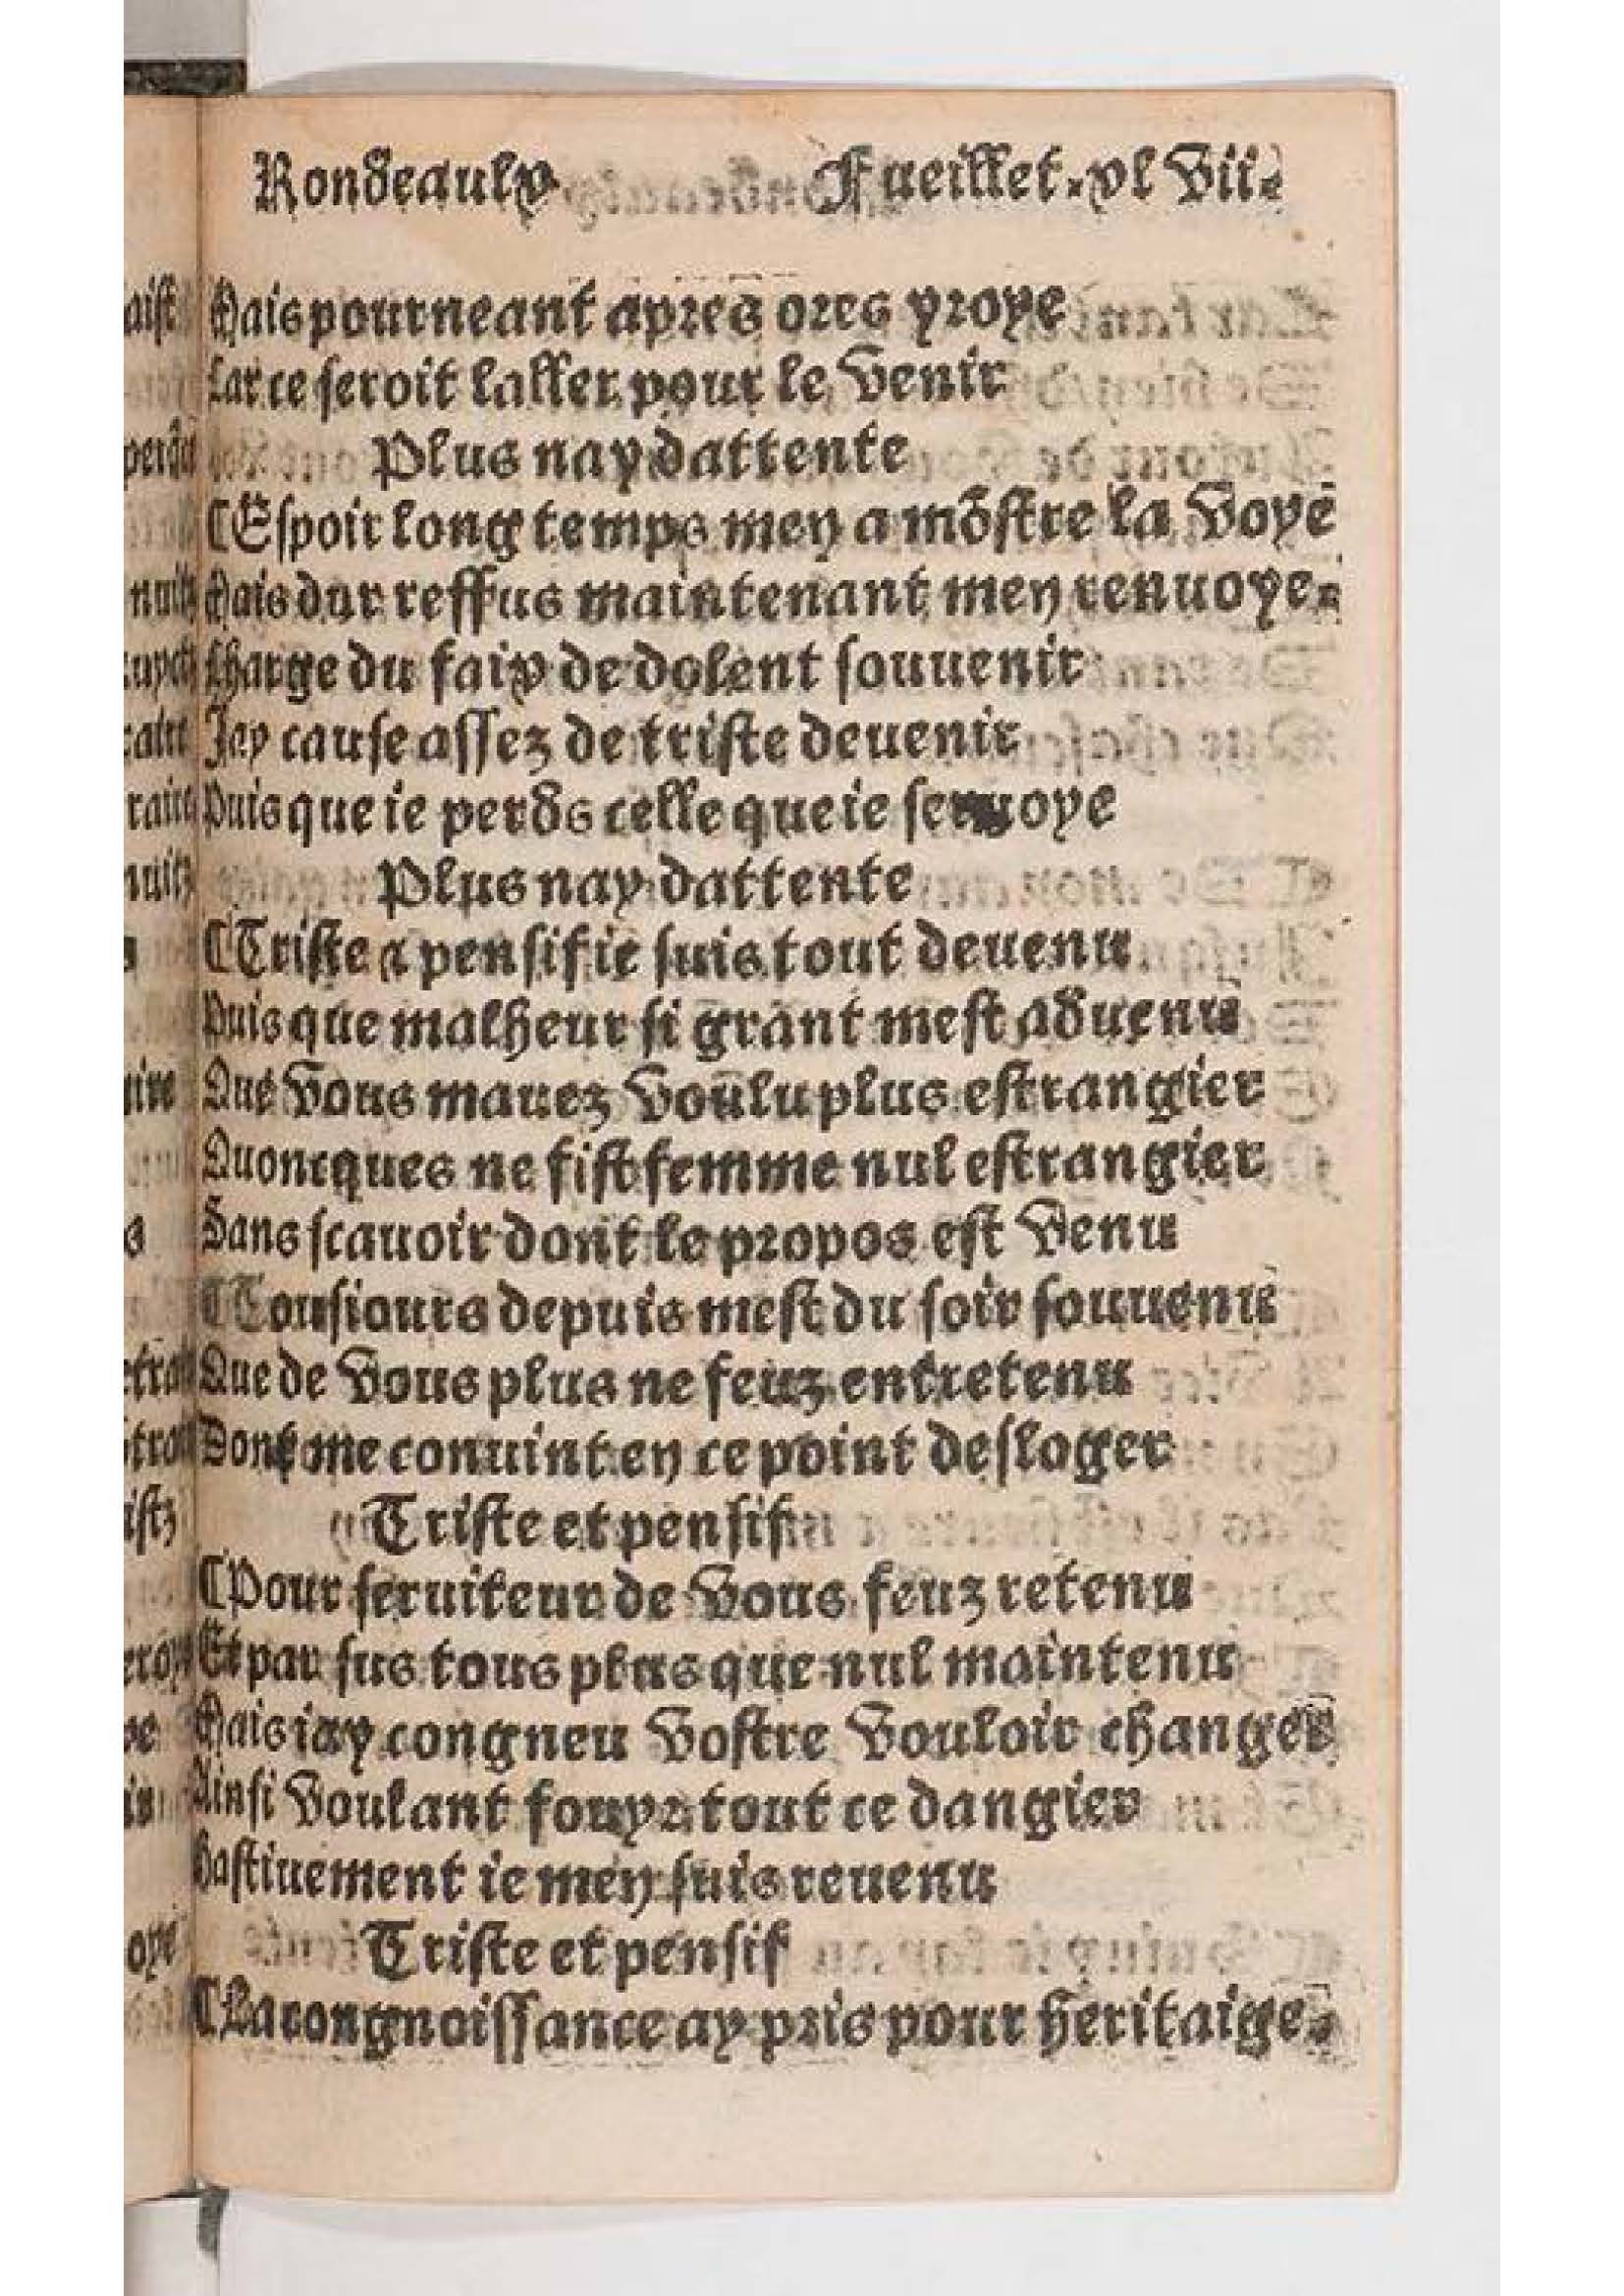 Rondeaulx Fueillet.xl vii.
Mais pour neant apres ores yroye
Car ce seroit laller pour le venir
Plus nay dattente
⸿Espoir long temps men a mõstre la voye
Mais dur reffus maintenant men renuoye.
Charge du faix de dolent souuenir
Jay cause assez de triste deuenir
Puis que ie perds celle que ie seruoye
Plus nay dattente
⸿Triste & pensif ie suis tout deuenu
Puis que malheur si grant mest aduenu
Que vous mauez voulu plus estrangier
Quoncques ne fist femme nul estrangier
Sans scauoir dont le propos est venu
⸿Tousiours depuis mest du soir souuenu
Que de vous plus ne feuz entretenu
Dont me conuint en ce point desloger
Triste et pensif
⸿Pour seruiteur de vous feuz retenu
Et par sus tous plus que nul maintenu
Mais iay congneu vostre vouloir changer
Ainsi voulant fouyr tout ce dangier
Hastiuement ie men suis reuenu
Triste et pensif
⸿La congnoissance ay pris pour heritaige.